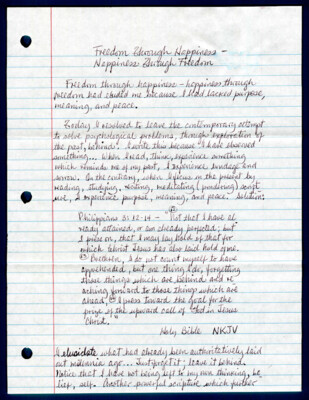 Freedom Through Happiness -
Happiness Through Freedom
Freedom through happiness - happiness through
freedom had eluded me because I had lacked purpose,
meaning, and peace.
Today I resolved to leave the contemporary attempt
to solve psychological problems, through exploration of
the past, behind! I write this because I have observed
something... When I read, think, experience something
which reminds me of my past, I experience bondage and
sorrow. On the contrary, when I focus on the present by
reading, studying, writing, meditating (pondering) script-
ure, I experience purpose, meaning, and peace. Solution:
Philippians 3:12-14 - "12 Not that I have al-
ready attained, or am already perfected; but
I press on, that I may lay hold of that for
which Christ Jesus has also laid hold of me.
13 Brethren, I do not count myself to have
apprehended; but one thing I do, forgetting
those things which are behind and re-
aching forward to those things which are
ahead, 14 I press toward the goal for the
prize of the upward call of God in Jesus
Christ."
Holy Bible NKJV
I elucidate what had already been authoritatively laid
out millennia ago... Just forget it; leave it behind.
Notice that I have not being left to my own thinking, be-
lief, self. Another powerful scripture which further